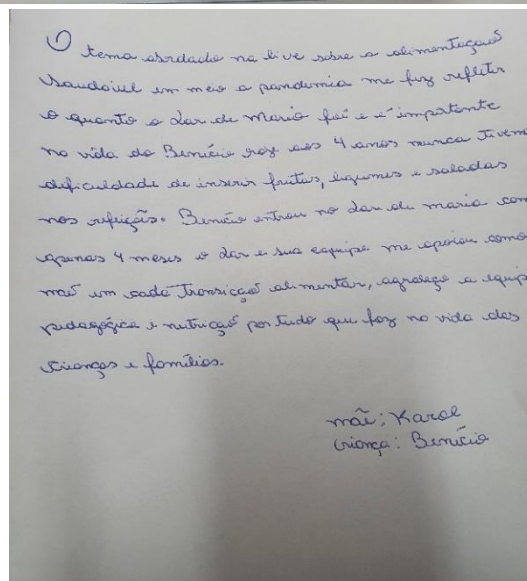 O tema abordado na live sobre a alimentação
saudável em meio a pandemia me fez refletir
o quanto o Lar de Maria foi e é importante
na vida do Benício hoje aos 4 anos nunca tivem
dificuldade de inserir frutas, legumes e saladas
nas refeições. Benício entrou no Lar de Maria com
apenas 4 meses o Lar e sua equipe me apoiou como
mãe em cada transição alimentar, agradeço a equip
pedagógica e nutrição por tudo que faz na vida das
crianças e famílias.
mãe: Karol
criança: Benício